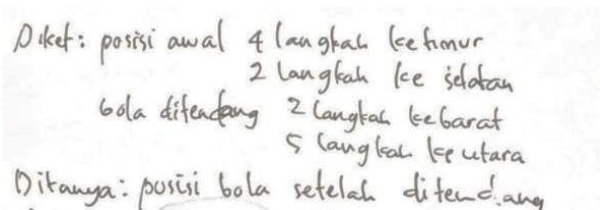 Diket: posisi awal 4 langkah ke timur
2 langkah ke selatan
bola ditendang 2 langkah ke barat
5 langkah ke utara
Ditanya: posisi bola setelah ditendang